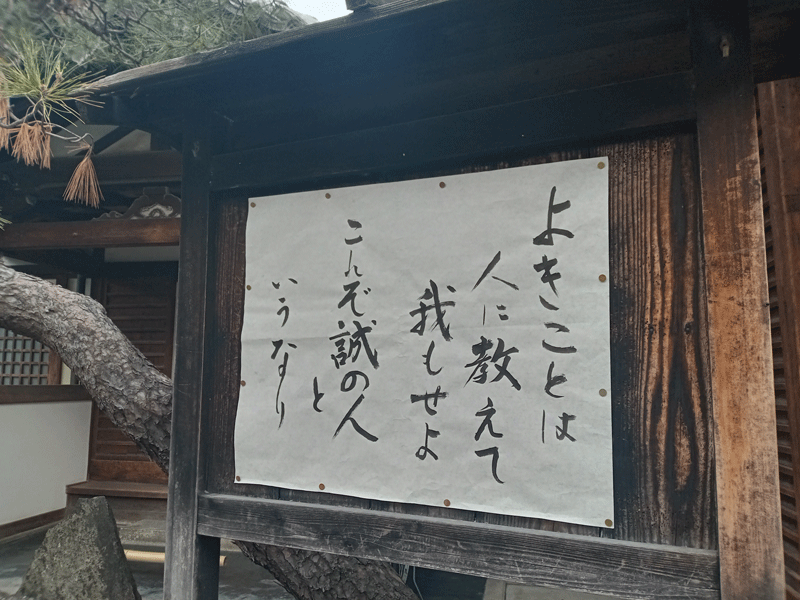 よきことは
人に教えて
我もせよ
これぞ誠の人
と
いうなり